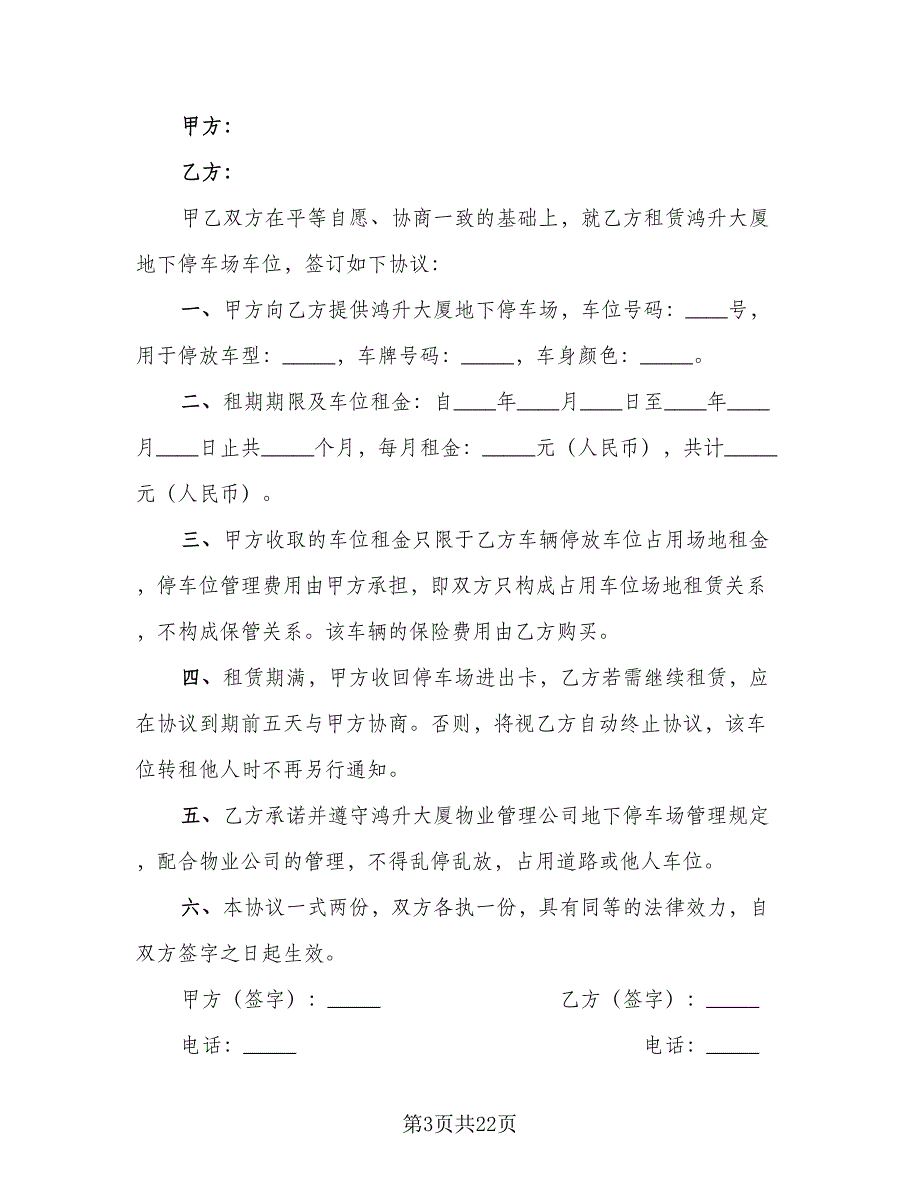 甲方：
乙方：
甲乙双方在平等自愿、协商一致的基础上，就乙方租赁鸿升大厦
地下停车场车位，签订如下协议：
一、甲方向乙方提供鸿升大厦地下停车场，车位号码：____号，
用于停放车型：_____，车牌号码：_____，车身颜色：_____。
二、租期期限及车位租金：自____年____月____日至____年____
月____日止共_____个月，每月租金：_____元（人民币），共计_____
元（人民币）。
三、甲方收取的车位租金只限于乙方车辆停放车位占用场地租金
，停车位管理费用由甲方承担，即双方只构成占用车位场地租赁关系
，不构成保管关系。该车辆的保险费用由乙方购买。
四、租赁期满，甲方收回停车场进出卡，乙方若需继续租赁，应
在协议到期前五天与甲方协商。否则，将视乙方自动终止协议，该车
位转租他人时不再另行通知。
五、乙方承诺并遵守鸿升大厦物业管理公司地下停车场管理规定
，配合物业公司的管理，不得乱停乱放，占用道路或他人车位。
六、本协议一式两份，双方各执一份，具有同等的法律效力，自
双方签字之日起生效。
甲方（签字）：_____ 乙方（签字）：_____
电话：_____ 电话：_____
第3页共22页